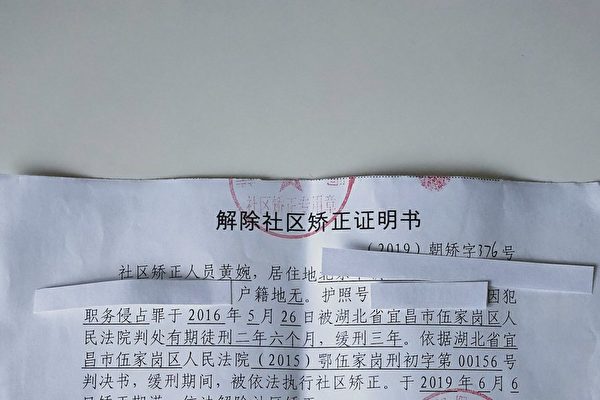 社区矫正专用章
解除社区矫正证明书
（2019）朝矫字376号
社区矫正人员黄婉，居住地北京
户籍地无。护照号 因犯
职务侵占罪于2016年5月26日被湖北省宜昌市伍家岗区人
民法院判处有期徒刑二年六个月，缓刑三年。依据湖北省宜
昌市伍家岗区人民法院（2015）鄂伍家岗刑初字第00156号
判决书，缓刑期间，被依法执行社区矫正。于2019年6月6
日矫正期满，依法解除社区矫正